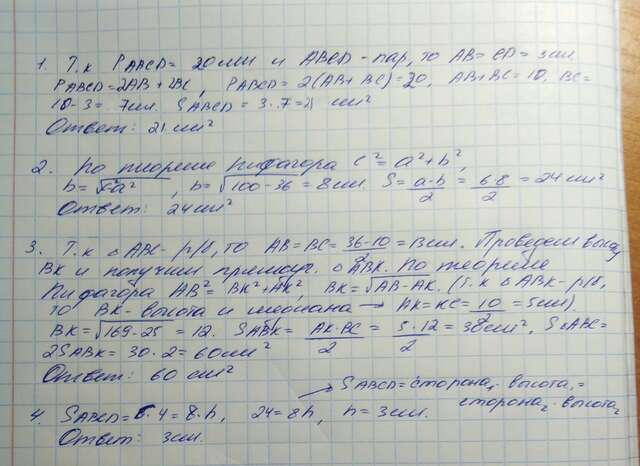 1. Т.к PABCD = 20см и ABCD - пар, то AB = CD = 3см.
PABCD = 2AB + 2BC, PABCD = 2(AB + BC) = 20, AB + BC = 10, BC =
10 - 3 = 7см. SABCD = 3 · 7 = 21 см²
Ответ: 21 см²
2. По теореме Пифагора c² = a² + b²,
b = √c-a², b = √100-36 = 8см. S = a·b/2 = 6·8/2 = 24 см²
Ответ: 24 см²
3. Т.к △ ABC - р/б, то AB = BC = 36-10/2 = 13см. Проведем
BK и получим прямоуг. △ ABK. По теореме
Пифагора AB² = BK² + AK², BK = √AB-AK. (Т.к △ ABK - р/б,
то BK - высота и медиана → AK = KC = 10/2 = 5см).
BK = √169-25 = 12. SABK = AK·BC/2 = 5·12/2 = 30см². S△ABC =
2SABK = 30 · 2 = 60см²
Ответ: 60 см²
→ SABCD = сторона₁ · высота₁ =
сторона₂ · высота₂
4. SABCD = 6·4 = 8·h, 24 = 8h, h = 3см.
Ответ: 3см.